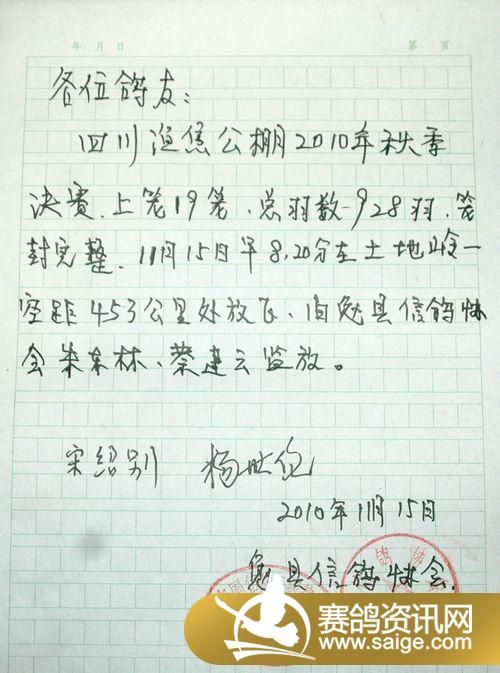 年 月 日
第 页
各位鸽友：
四川渔焦公棚2010年秋季
决赛、上笼19笼、总羽数928羽、笼
封完整、11月15日早8,20分在土地岭一
空距453公里处放飞、由勉县信鸽协
会朱东林、蔡建云监放。
宋绍别
2010年11月15日
勉县信鸽协会.
赛鸽资讯网
www.saige.com